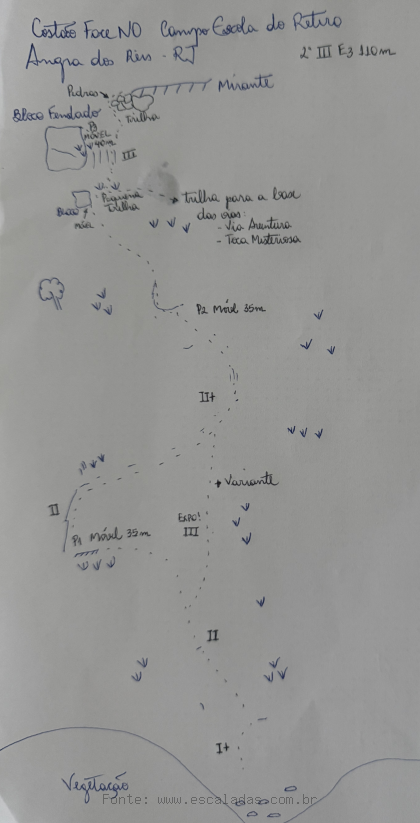 Costão Face NO Campo Escola do Retiro
Angra dos Reis - RJ
2º III E3 110m
Pedras
Mirante
Trilha
Bloco Fendado
P3
MÓVEL
40m
III
Pequena
Trilha
Bloco
MÓVEL
Trilha para a base
das vias:
- Via Aventura
- Toca Misteriosa
P2 Móvel 35m
II+
Variante
II
EXPO!
III
P1 Móvel 35m
II
I+
Vegetação
Fonte: www.escaladas.com.br